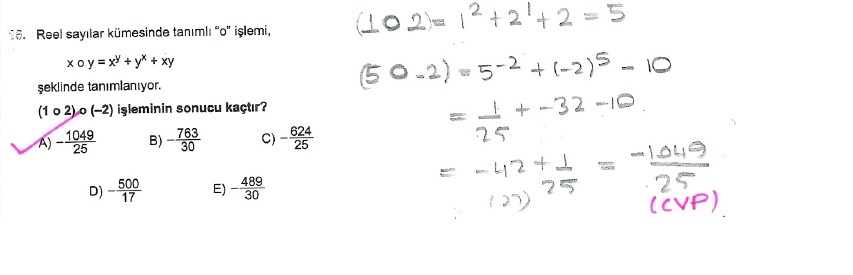 15. Reel sayılar kümesinde tanımlı "o" işlemi,
x o y = x^y + y^x + xy
şeklinde tanımlanıyor.
(1 o 2) o (–2) işleminin sonucu kaçtır?
A) –1049/25 B) –763/30 C) –624/25
D) –500/17 E) –489/30
(1 o 2) = 1² + 2¹ + 2 = 5
(5 o -2) = 5⁻² + (-2)⁵ - 10
= 1/25 + -32 -10
= -42 + 1/25 = -1049/25
(CVP)